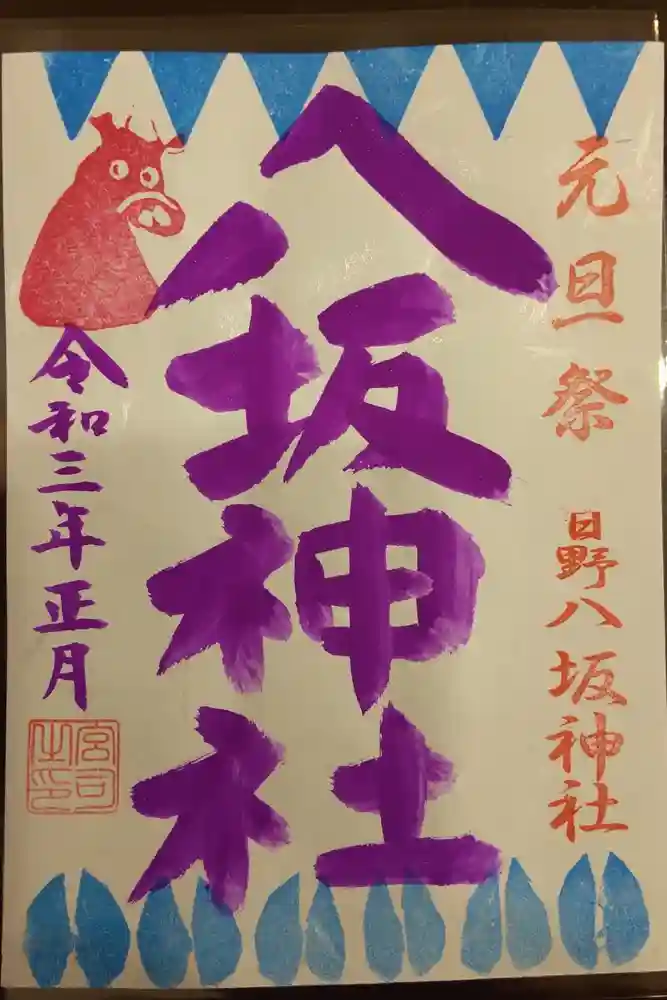 元旦祭
日野八坂神社
八坂神社
令和三年正月
宮司之印